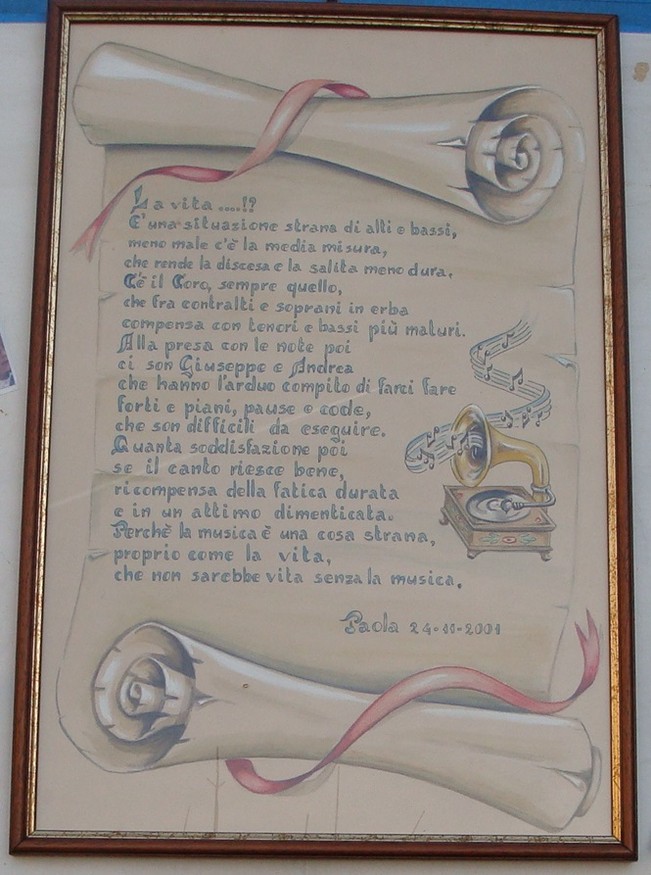 La vita ....!?
E' una situazione strana di alti e bassi,
meno male c'è la media misura,
che rende la discesa e la salita meno dura.
C'è il Coro, sempre quello,
che fra contralti e soprani in erba
compensa con tenori e bassi più maturi.
Alla presa con le note poi
ci son Giuseppe e Andrea
che hanno l'arduo compito di farci fare
forti e piani, pause e code,
che son difficili da eseguire.
Quanta soddisfazione poi
se il canto riesce bene,
ricompensa della fatica durata
e in un attimo dimenticata.
Perchè la musica è una cosa strana,
proprio come la vita,
che non sarebbe vita senza la musica.
Paola 24-11-2001